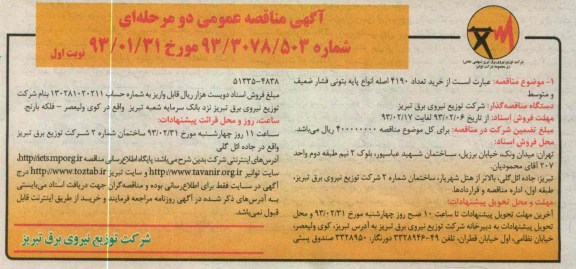 آگهی مناقصه عمومی دو مرحله‌ای
شماره ۹۳/۳۰۷۸/۵۰۳ مورخ ۹۳/۰۱/۳۱
نوبت اول
۱- موضوع مناقصه: عبارت است از خرید تعداد ۴۱۹۰ اصله انواع پایه بتونی فشار ضعیف
و متوسط
دستگاه مناقصه‌گذار: شرکت توزیع نیروی برق تبریز
مهلت فروش اسناد: از تاریخ ۹۳/۰۲/۰۶ لغایت ۹۳/۰۲/۱۷
مبلغ تضمین شرکت در مناقصه: برای کل موضوع مناقصه ۴۰۰۰۰۰۰۰۰ ریال می‌باشد.
محل فروش اسناد:
تهران: میدان ونک، خیابان برزیل، ساختمان شهید عباسپور، بلوک ۲ نیم طبقه دوم واحد
۲۰۷ آقای محمودیان.
تبریز: جاده ائل‌گلی، بالاتر از هتل شهریار، ساختمان شماره ۲ شرکت توزیع نیروی برق تبریز،
طبقه اول، اداره مناقصه و قراردادها.
مهلت و محل تحویل پیشنهادات:
آخرین مهلت تحویل پیشنهادات تا ساعت ۱۰ صبح روز چهارشنبه مورخ ۹۳/۰۲/۳۱ و محل
تحویل پیشنهادات به دبیرخانه شرکت توزیع نیروی برق تبریز به آدرس تبریز، کوی ولیعصر،
خیابان نظامی، اول خیابان قطران، تلفن ۴۹-۳۳۲۸۹۴۶ دورنگار، ۳۳۲۸۹۵۰ صندوق پستی
۵۱۳۳۵-۴۸۳۸
مبلغ فروش اسناد دویست هزار ریال قابل واریز به شماره حساب ۱۳۰۲۸۱۰۲۰۲۱۱ بنام شرکت
توزیع نیروی برق تبریز نزد بانک سرمایه شعبه تبریز واقع در کوی ولیعصر – فلکه بارنج.
ساعت، روز و محل قرائت پیشنهادات:
ساعت ۱۱ روز چهارشنبه مورخ ۹۳/۰۲/۳۱ ساختمان شماره ۲ شرکت توزیع برق تبریز
واقع در جاده ائل گلی
آدرس‌های اینترنتی شرکت بدین شرح می‌باشد: پایگاه اطلاع‌رسانی مناقصه http://iets.mporg.ir
سایت توانیر http://www.tavanir.org.ir و سایت تبریز http://www.toztab.ir درج
آگهی در سایت فقط برای اطلاع‌رسانی بوده و مناقصه‌گران جهت دریافت اسناد می‌بایستی
به آدرس‌های ذکر شده در آگهی روزنامه مراجعه فرمایند و خرید از طریق اینترنت قابل
قبول نمی‌باشد.
شرکت توزیع نیروی برق تبریز